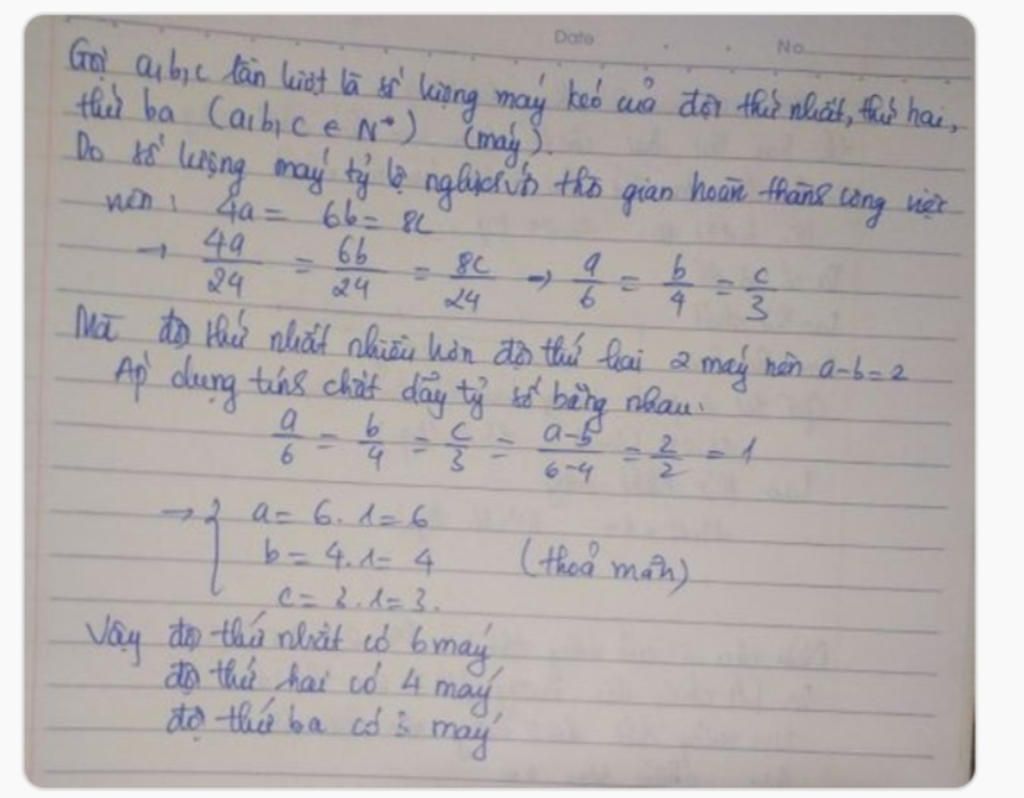 Date No
Gọi a,b,c lần lượt là số lượng máy kéo của đội thứ nhất, thứ hai,
thứ ba (a,b,c ∈ N*) (máy).
Do số lượng máy tỷ lệ nghịch với thời gian hoàn thành công việc
nên: 4a = 6b = 8c
→ 4a/24 = 6b/24 = 8c/24 → a/6 = b/4 = c/3
Mà đội thứ nhất nhiều hơn đội thứ hai 2 máy nên a-b=2
Áp dụng tính chất dãy tỷ số bằng nhau:
a/6 = b/4 = c/3 = a-b/6-4 = 2/2 = 1
→ { a = 6.1=6
b = 4.1= 4 (thoả mãn)
c = 3.1=3.
Vậy đội thứ nhất có 6 máy
đội thứ hai có 4 máy
đội thứ ba có 3 máy